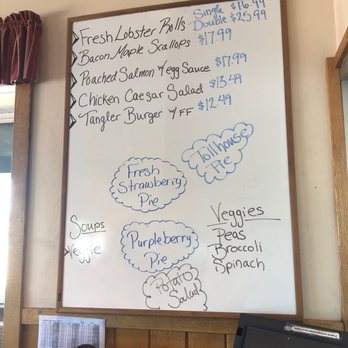 Fresh Lobster Rolls Single $16.99
Double $25.99
Bacon Maple Scallops $17.99
Poached Salmon w/egg Sauce $17.99
Chicken Caesar Salad $13.49
Tangler Burger w/FF $12.49
Tollhouse
Pie
Fresh
Strawberry
Pie
Soups
Veggie
Purpleberry
Pie
Potato
Salad
Veggies
Peas
Broccoli
Spinach